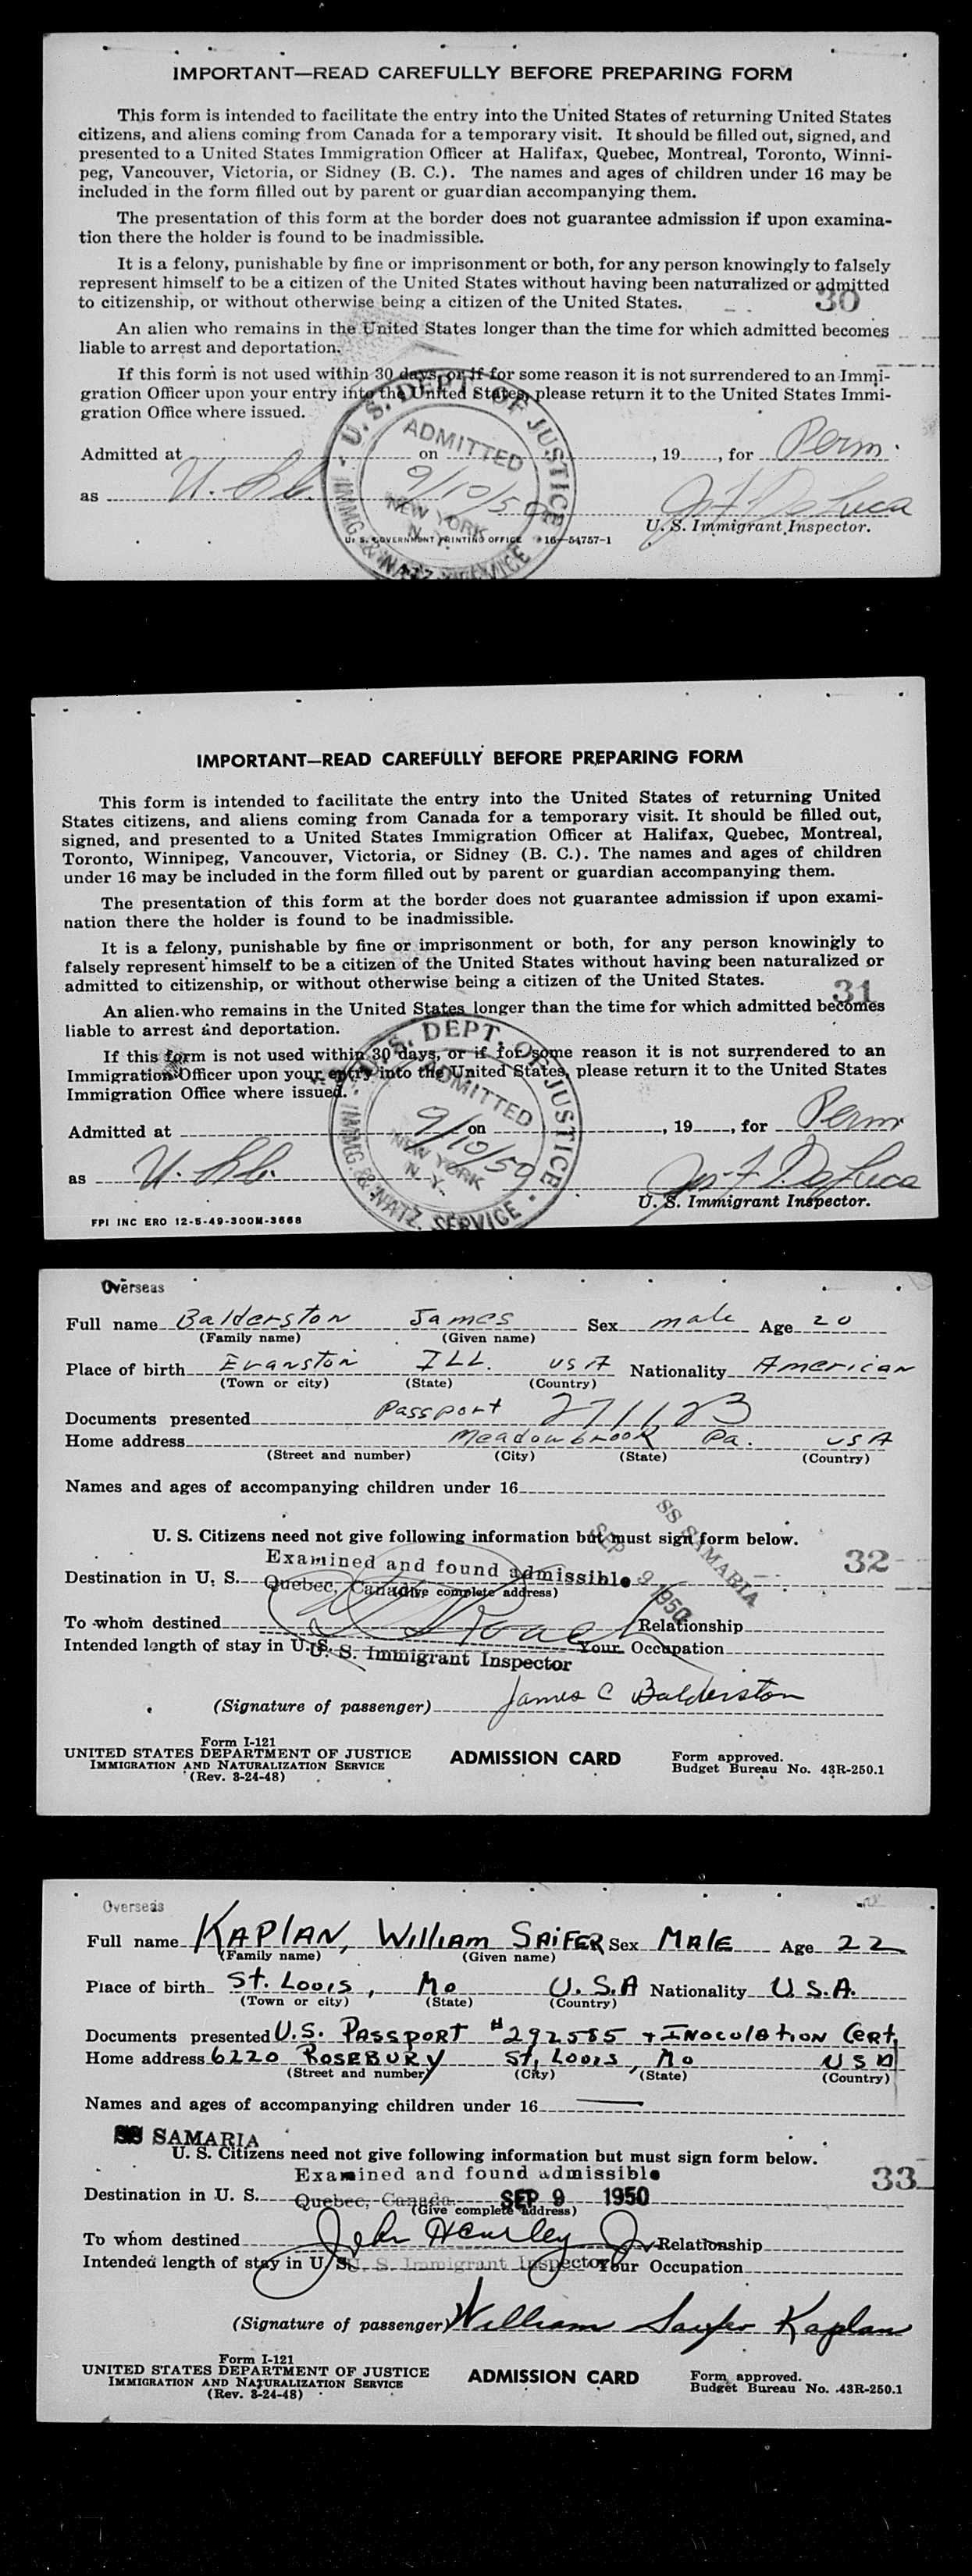 IMPORTANT—READ CAREFULLY BEFORE PREPARING FORM
This form is intended to facilitate the entry into the United States of returning United States
citizens, and aliens coming from Canada for a temporary visit. It should be filled out, signed, and
presented to a United States Immigration Officer at Halifax, Quebec, Montreal, Toronto, Winni-
peg, Vancouver, Victoria, or Sidney (B. C.). The names and ages of children under 16 may be
included in the form filled out by parent or guardian accompanying them.
The presentation of this form at the border does not guarantee admission if upon examina-
tion there the holder is found to be inadmissible.
It is a felony, punishable by fine or imprisonment or both, for any person knowingly to falsely
represent himself to be a citizen of the United States without having been naturalized or admitted
to citizenship, or without otherwise being a citizen of the United States.
30
An alien who remains in the United States longer than the time for which admitted becomes
liable to arrest and deportation.
If this form is not used within 30 days, or if for some reason it is not surrendered to an Immi-
gration Officer upon your entry into the United States, please return it to the United States Immi-
gration Office where issued.
U. S. DEPT. OF JUSTICE
ADMITTED
9/10/50
NEW YORK
N. Y.
IMMG. & NATZ. SERVICE
Admitted at on , 19 , for Perm.
as
U. S. Immigrant Inspector.
U. S. GOVERNMENT PRINTING OFFICE 16—54757-1
IMPORTANT—READ CAREFULLY BEFORE PREPARING FORM
This form is intended to facilitate the entry into the United States of returning United
States citizens, and aliens coming from Canada for a temporary visit. It should be filled out,
signed, and presented to a United States Immigration Officer at Halifax, Quebec, Montreal,
Toronto, Winnipeg, Vancouver, Victoria, or Sidney (B. C.). The names and ages of children
under 16 may be included in the form filled out by parent or guardian accompanying them.
The presentation of this form at the border does not guarantee admission if upon exami-
nation there the holder is found to be inadmissible.
It is a felony, punishable by fine or imprisonment or both, for any person knowingly to
falsely represent himself to be a citizen of the United States without having been naturalized or
admitted to citizenship, or without otherwise being a citizen of the United States.
31
An alien who remains in the United States longer than the time for which admitted becomes
liable to arrest and deportation.
If this form is not used within 30 days, or if for some reason it is not surrendered to an
Immigration Officer upon your entry into the United States, please return it to the United States
Immigration Office where issued.
U. S. DEPT. OF JUSTICE
ADMITTED
9/10/50
NEW YORK
N. Y.
IMMG. & NATZ. SERVICE
Admitted at on , 19 , for Perm
as
U. S. Immigrant Inspector.
FPI INC ERO 12-5-49-300M-3668
Overseas
Full name Balderston James Sex male Age 20
(Family name) (Given name)
Place of birth Evanston ILL. USA Nationality American
(Town or city) (State) (Country)
Documents presented Passport 271123
Home address Meadowbrook Pa. USA
(Street and number) (City) (State) (Country)
Names and ages of accompanying children under 16
SS SAMARIA
SEP 9 1950
U. S. Citizens need not give following information but must sign form below.
32
Examined and found admissible
Destination in U. S. Quebec, Canada (Give complete address)
To whom destined Relationship
Intended length of stay in U. S. Your Occupation
U. S. Immigrant Inspector
(Signature of passenger) James C Balderston
Form I-121
UNITED STATES DEPARTMENT OF JUSTICE
IMMIGRATION AND NATURALIZATION SERVICE
(Rev. 3-24-48)
ADMISSION CARD
Form approved.
Budget Bureau No. 43R-250.1
Overseas
Full name KAPLAN, William SAIFER Sex MALE Age 22
(Family name) (Given name)
Place of birth St. Louis, Mo U.S.A Nationality U.S.A.
(Town or city) (State) (Country)
Documents presented U.S. PASSPORT #292585 + INOCULATION CERT.
Home address 6220 ROSEBURY St. Louis, Mo USA
(Street and number) (City) (State) (Country)
Names and ages of accompanying children under 16
SS SAMARIA
U. S. Citizens need not give following information but must sign form below.
Examined and found admissible
33
Destination in U. S. Quebec, Canada SEP 9 1950
(Give complete address)
To whom destined Relationship
Intended length of stay in U. S. Your Occupation
U. S. Immigrant Inspector
(Signature of passenger) William Saifer Kaplan
Form I-121
UNITED STATES DEPARTMENT OF JUSTICE
IMMIGRATION AND NATURALIZATION SERVICE
(Rev. 3-24-48)
ADMISSION CARD
Form approved.
Budget Bureau No. 43R-250.1